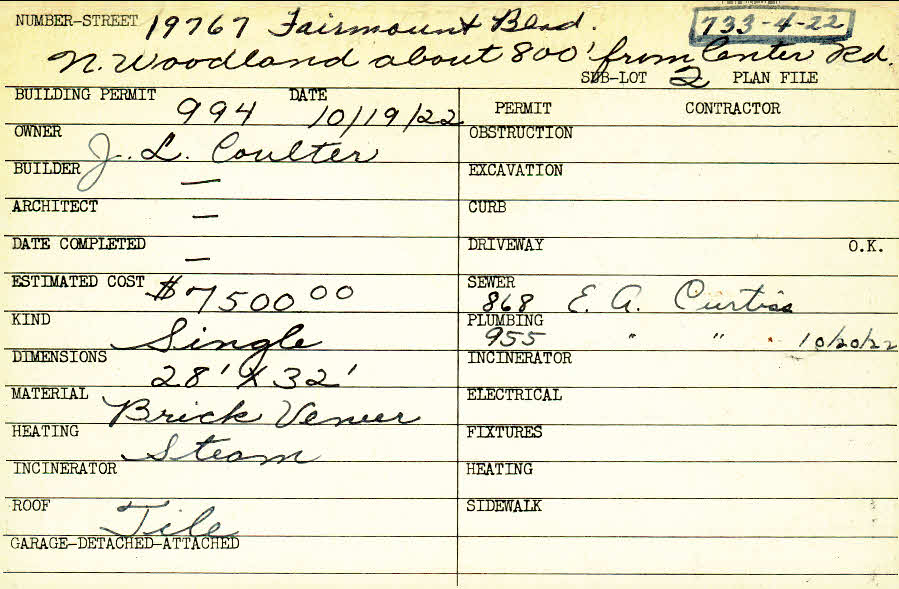 NUMBER-STREET 19767 Fairmount Blvd. 733-4-22
N. Woodland about 800' from Center Rd.
SUB-LOT 2 PLAN FILE
BUILDING PERMIT 994 DATE 10/19/22
PERMIT CONTRACTOR
OWNER J. L. Coulter
OBSTRUCTION
BUILDER —
EXCAVATION
ARCHITECT —
CURB
DATE COMPLETED —
DRIVEWAY O.K.
ESTIMATED COST $7500 00
SEWER 868 E. A. Curtiss
KIND Single
PLUMBING 955 " " 10/20/22
DIMENSIONS 28' X 32'
INCINERATOR
MATERIAL Brick Veneer
ELECTRICAL
HEATING Steam
FIXTURES
INCINERATOR
HEATING
ROOF Tile
SIDEWALK
GARAGE-DETACHED-ATTACHED